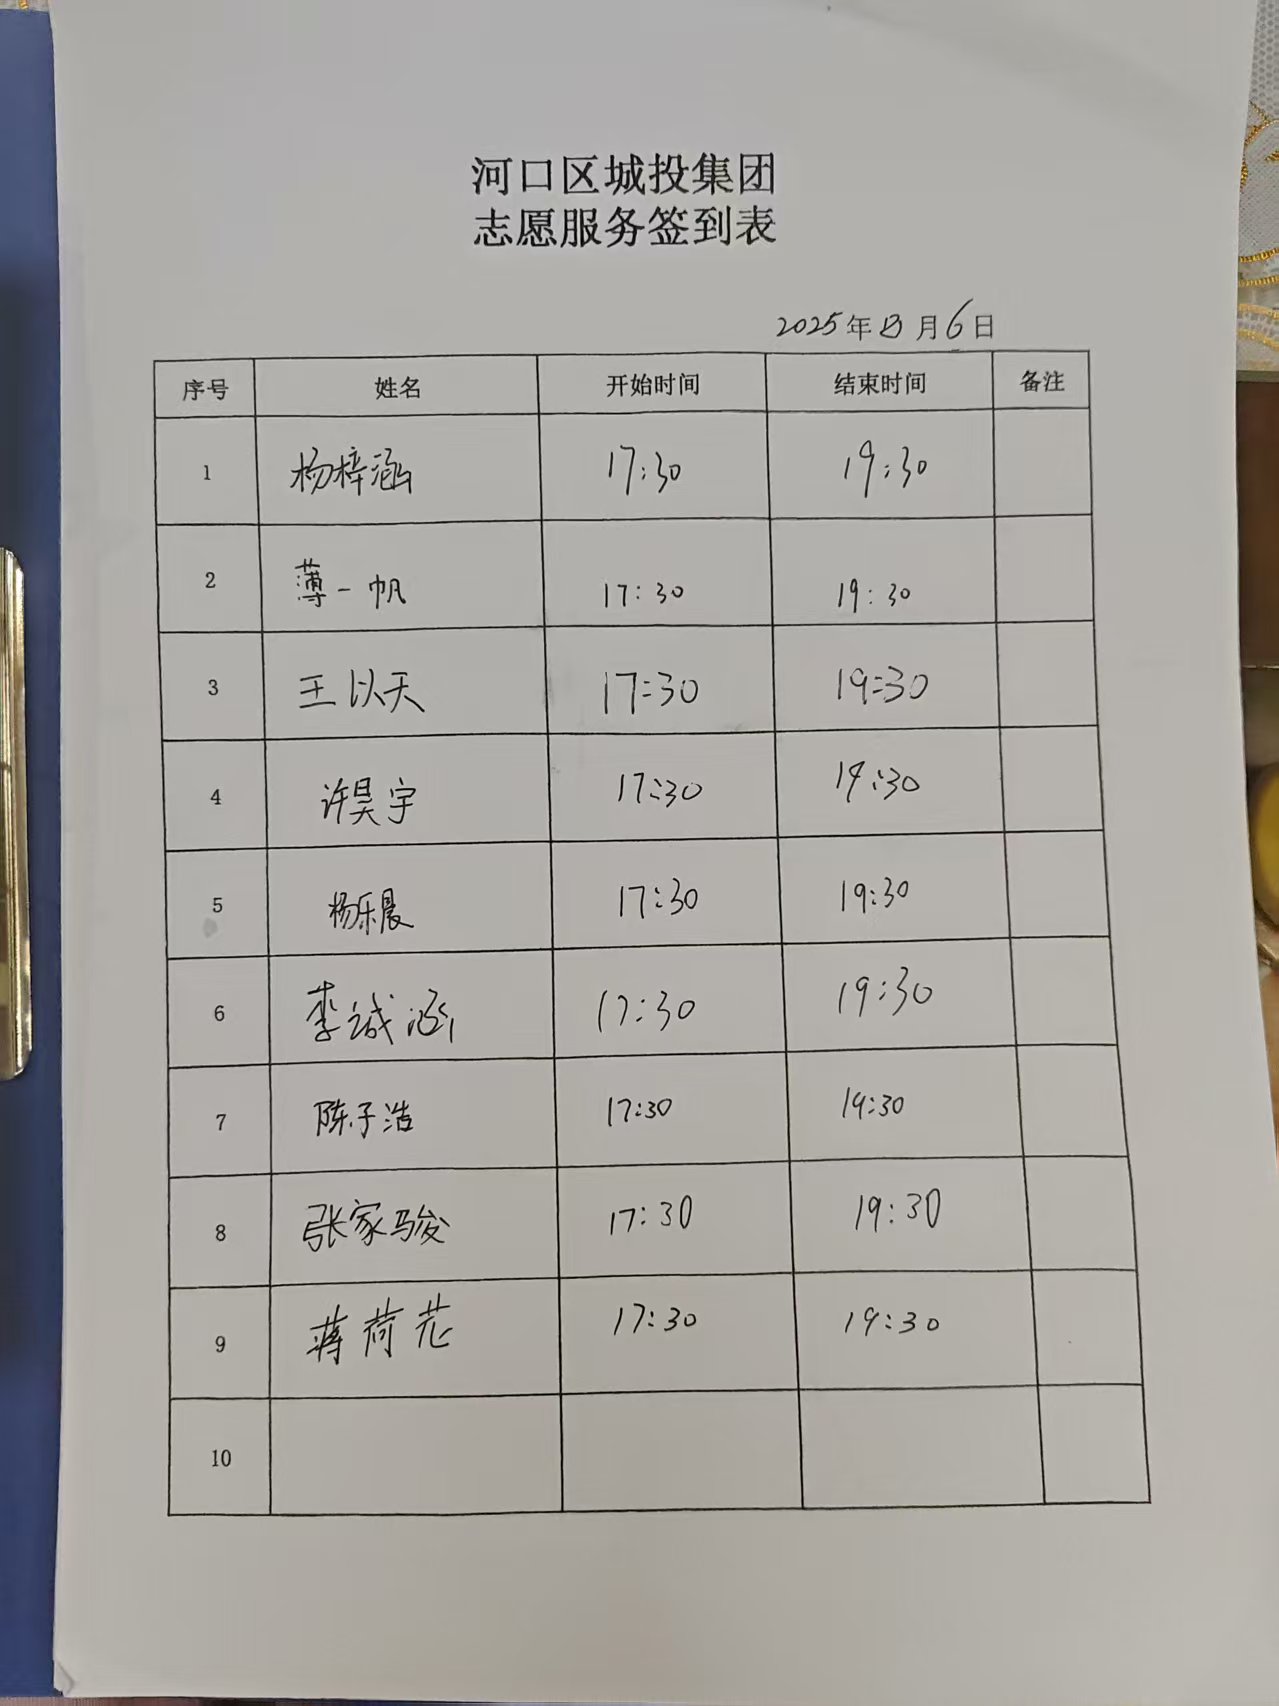 河口区城投集团
志愿服务签到表
2025年 月6日
序号 姓名 开始时间 结束时间 备注
1 杨梓涵 17:30 19:30
2 薄一帆 17:30 19:30
3 王以天 17:30 19:30
4 许昊宇 17:30 19:30
5 杨乐晨 17:30 19:30
6 李诚涵 17:30 19:30
7 陈子浩 17:30 19:30
8 张家骏 17:30 19:30
9 蒋荷芯 17:30 19:30
10